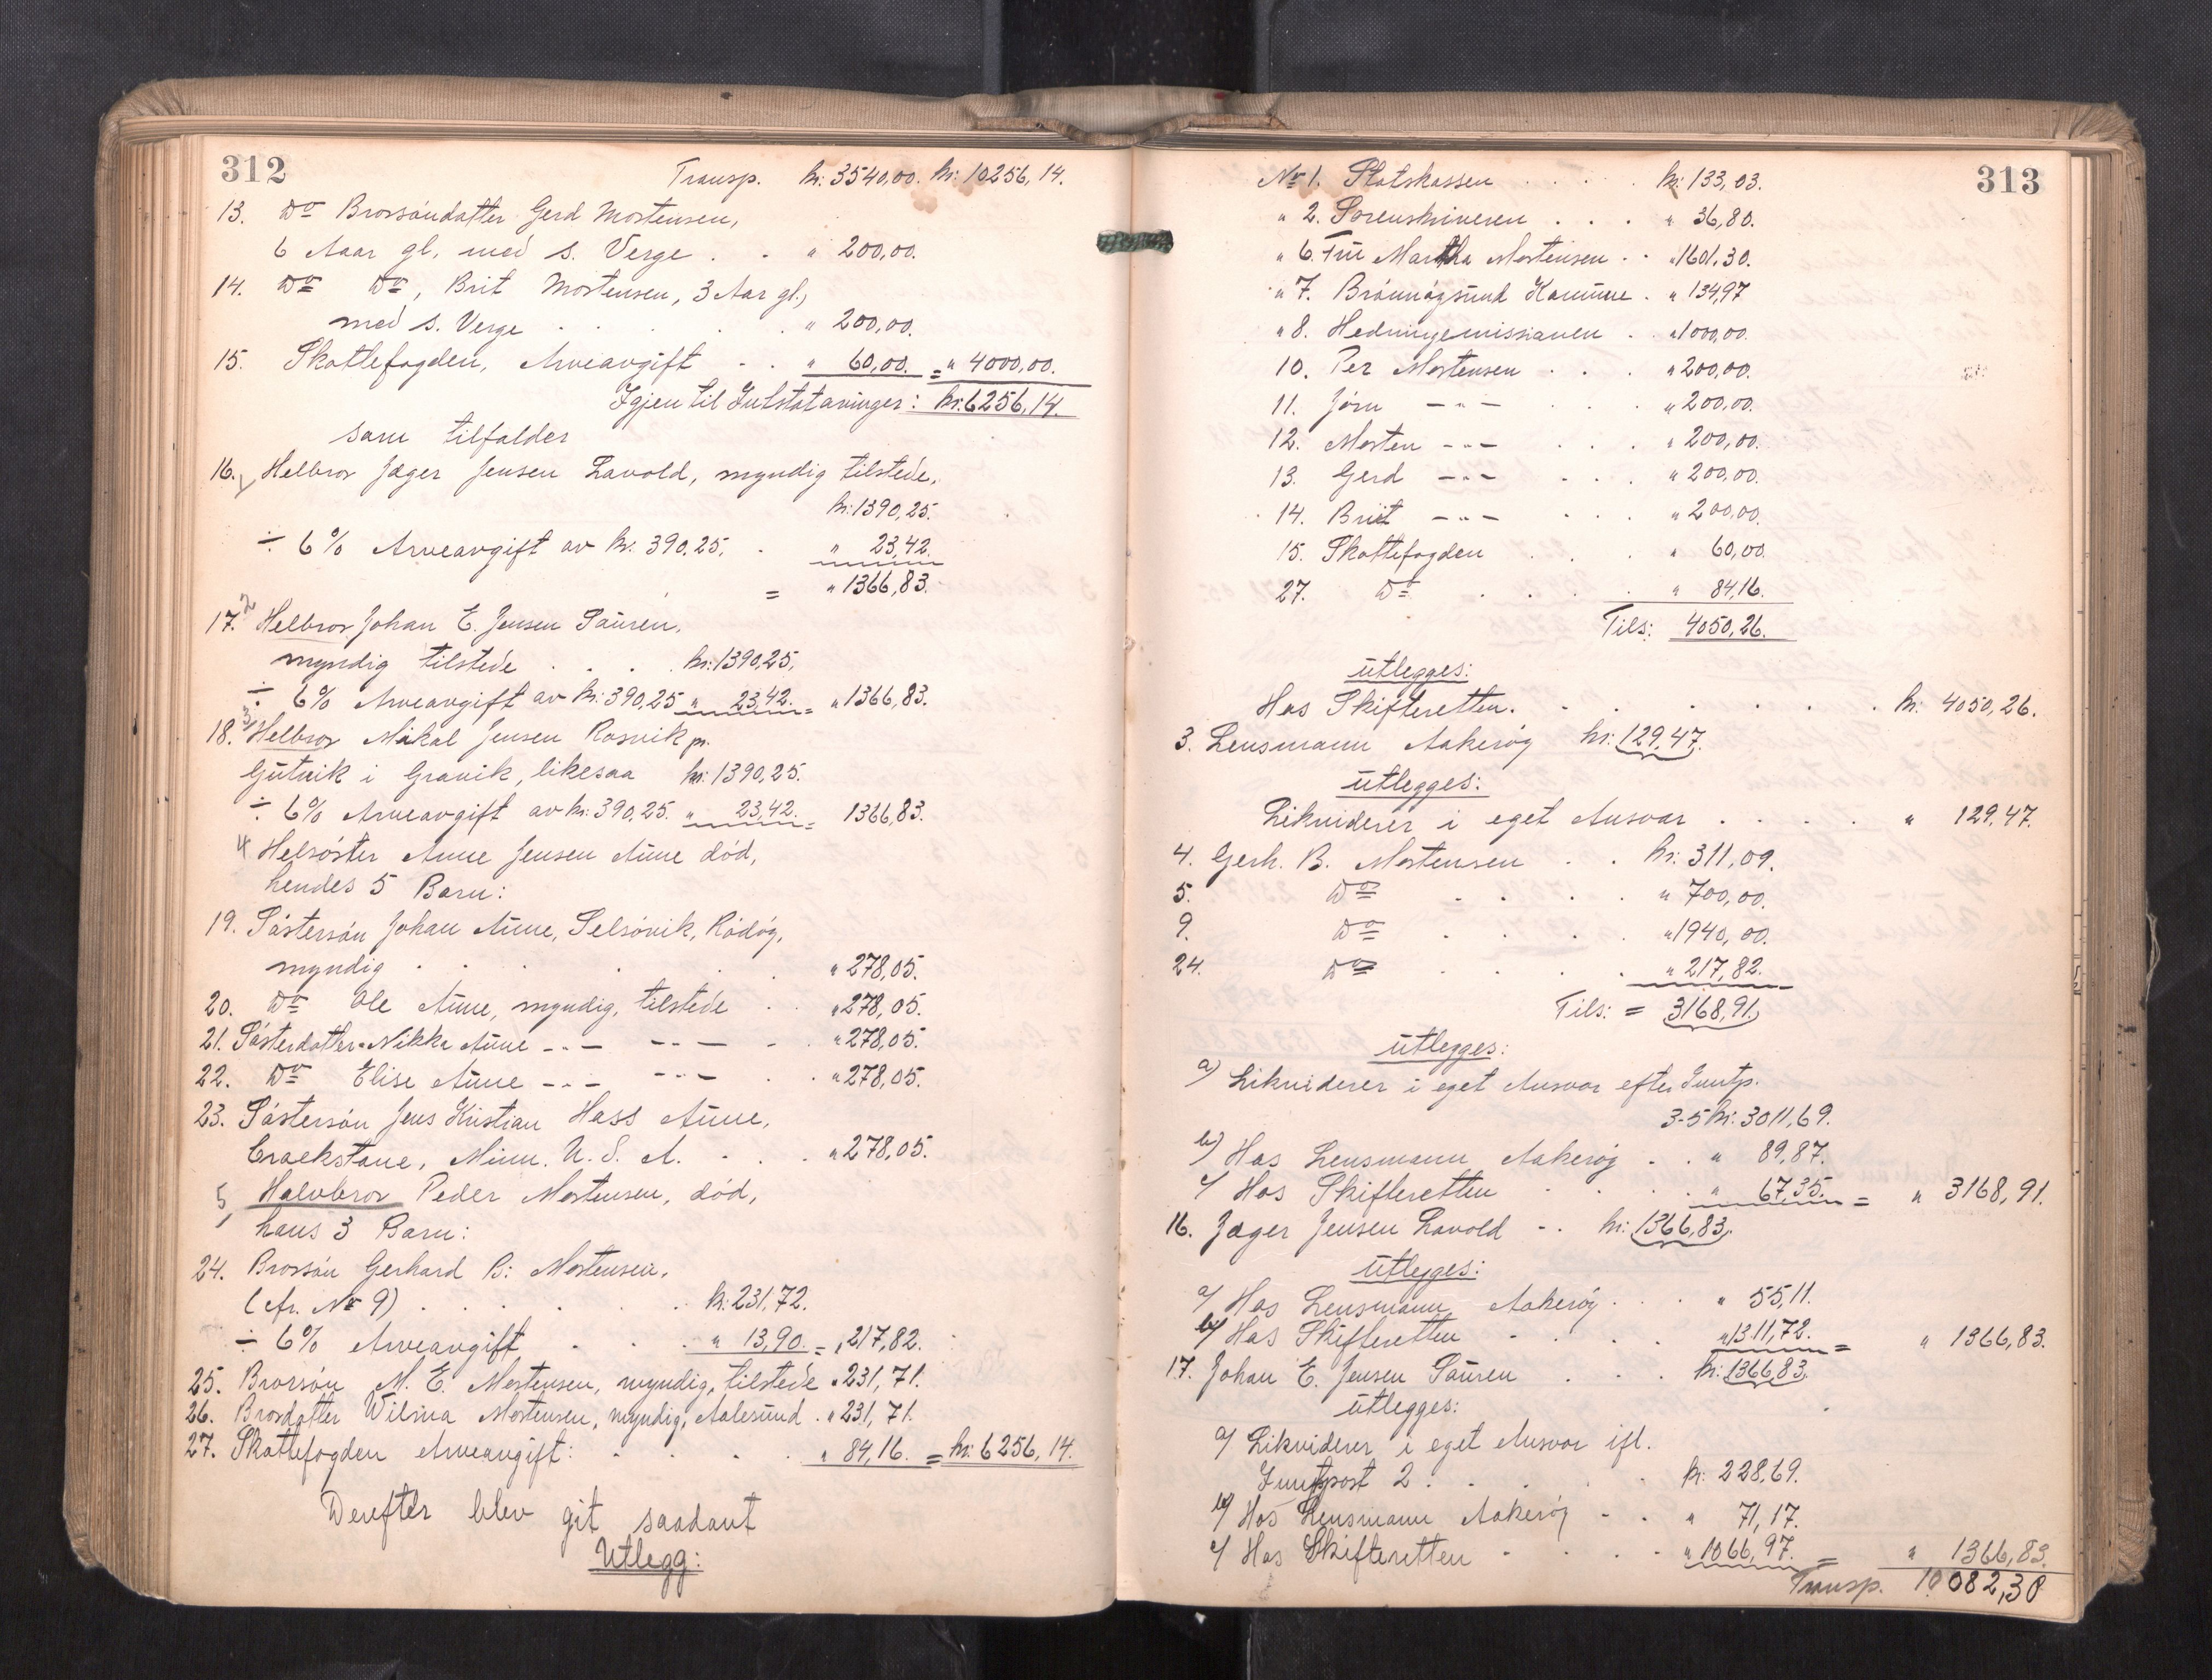 312
Transp. kr: 3540,00. kr: 10256,14.
13. Do Brorsöndatter Gerd Mortensen,
6 Aar gl. med s. Verge . . " 200,00.
14. Do Do, Brit Mortensen, 3 Aar gl.,
med s. Verge . . . . . " 200,00.
15. Skattefogden, Arveavgift . . " 60,00. = " 4000,00.
Igjen til Intestatarvinger: kr. 6256,14.
som tilfalder
16. 1/ Helbror Jæger Jensen Lavold, myndig tilstede,
kr: 1390,25.
÷ 6% Arveavgift av kr. 390,25. . " 23,42.
= " 1366,83.
17. 2 Helbror Johan E. Jensen Sauren,
myndig tilstede . . . . kr: 1390,25.
÷ 6% Arveavgift av kr: 390,25 " 23,42. = " 1366,83.
18. 3/ Helbror Mikal Jensen Rosvik pr.
Gutvik i Gravik, likesaa kr: 1390,25.
÷ 6% Arveavgift av kr: 390,25. " 23,42. = 1366,83.
4 Helsöster Anne Jensen Aune död,
hendes 5 Barn:
19. Søstersön Johan Aune, Selsövik, Rödöy,
myndig . . . . . " 278,05.
20. Do Ole Aune, myndig, tilstede . . " 278,05.
21. Søsterdatter Nikka Aune -"- -"- - " 278,05.
22. Do Elise Aune -"- -"- . . " 278,05.
23. Søstersön Jens Kristian Hass Aune,
Crackstone, Minn. U. S. A. . . . " 278,05.
5/ Halvbror Peder Mortensen, död,
hans 3 Barn:
24. Brorsön Gerhard B: Mortensen,
(cfr. No 9) . . . . . . kr: 231,72.
÷ 6% Arveavgift . . . " 13,90. = " 217,82.
25. Brorsön M. E. Mortensen, myndig, tilstede " 231,71.
26. Brordatter Wilma Mortensen, myndig, Aalesund . " 231,71.
27. Skattefogden Arveavgift: . . . . " 84,16. = kr: 6256,14.
Derefter blev git saadant
Utlegg:
313
No 1. Statskassen . . . . kr: 133,03.
" 2. Sorenskriveren . . . " 36,80.
" 6. Fru Martha Mortensen . . " 1601,30.
" 7. Brönnöysund Komune . " 134,97
" 8. Hedningemissionen . . " 1000,00.
10. Per Mortensen . . . " 200,00.
11. Jörn -"- . . . " 200,00.
12. Morten -"- . . . " 200,00.
13. Gerd -"- . . . " 200,00.
14. Brit -"- . . . " 200,00.
15. Skattefogden . . . " 60,00
27. Do . . . . " 84,16.
Tils: 4050,26.
utlegges:
Hos Skifteretten. . . . . . . . kr: 4050,26.
3. Lensmann Aakeröy kr: 129,47.
utlegges:
Likviderer i eget Ansvar . . . . " 129,47.
4. Gerh. B. Mortensen . . kr: 311,09.
5. Do . . . . " 700,00.
9. Do . . . . " 1940,00.
24. Do . . . . " 217,82.
Tils: = 3168,91.
utlegges:
a) Likviderer i eget Ansvar efter Inntp.
3-5 kr: 3011,69.
b) Hos Lensmann Aakeröy . . " 89,87.
c/ Hos Skifteretten . . . . " 67,35. = " 3168,91.
16. Jæger Jensen Lavold -. kr: 1366,83.
utlegges:
a/ Hos Lensmann Aakeröy . . . " 55,11.
b/ Hos Skifteretten . . . . " 1311,72. = " 1366,83.
17. Johan E. Jensen Sauren . . . kr: 1366,83.
utlegges:
a/ Likviderer i eget Ansvar ifl.
Inntpost 2 . . . . . kr: 228,69.
b/ Hos Lensmann Aakeröy - . " 71,17.
c/ Hos Skifteretten . . . . " 1066,97. = " 1366,83.
Transp. 10082,30